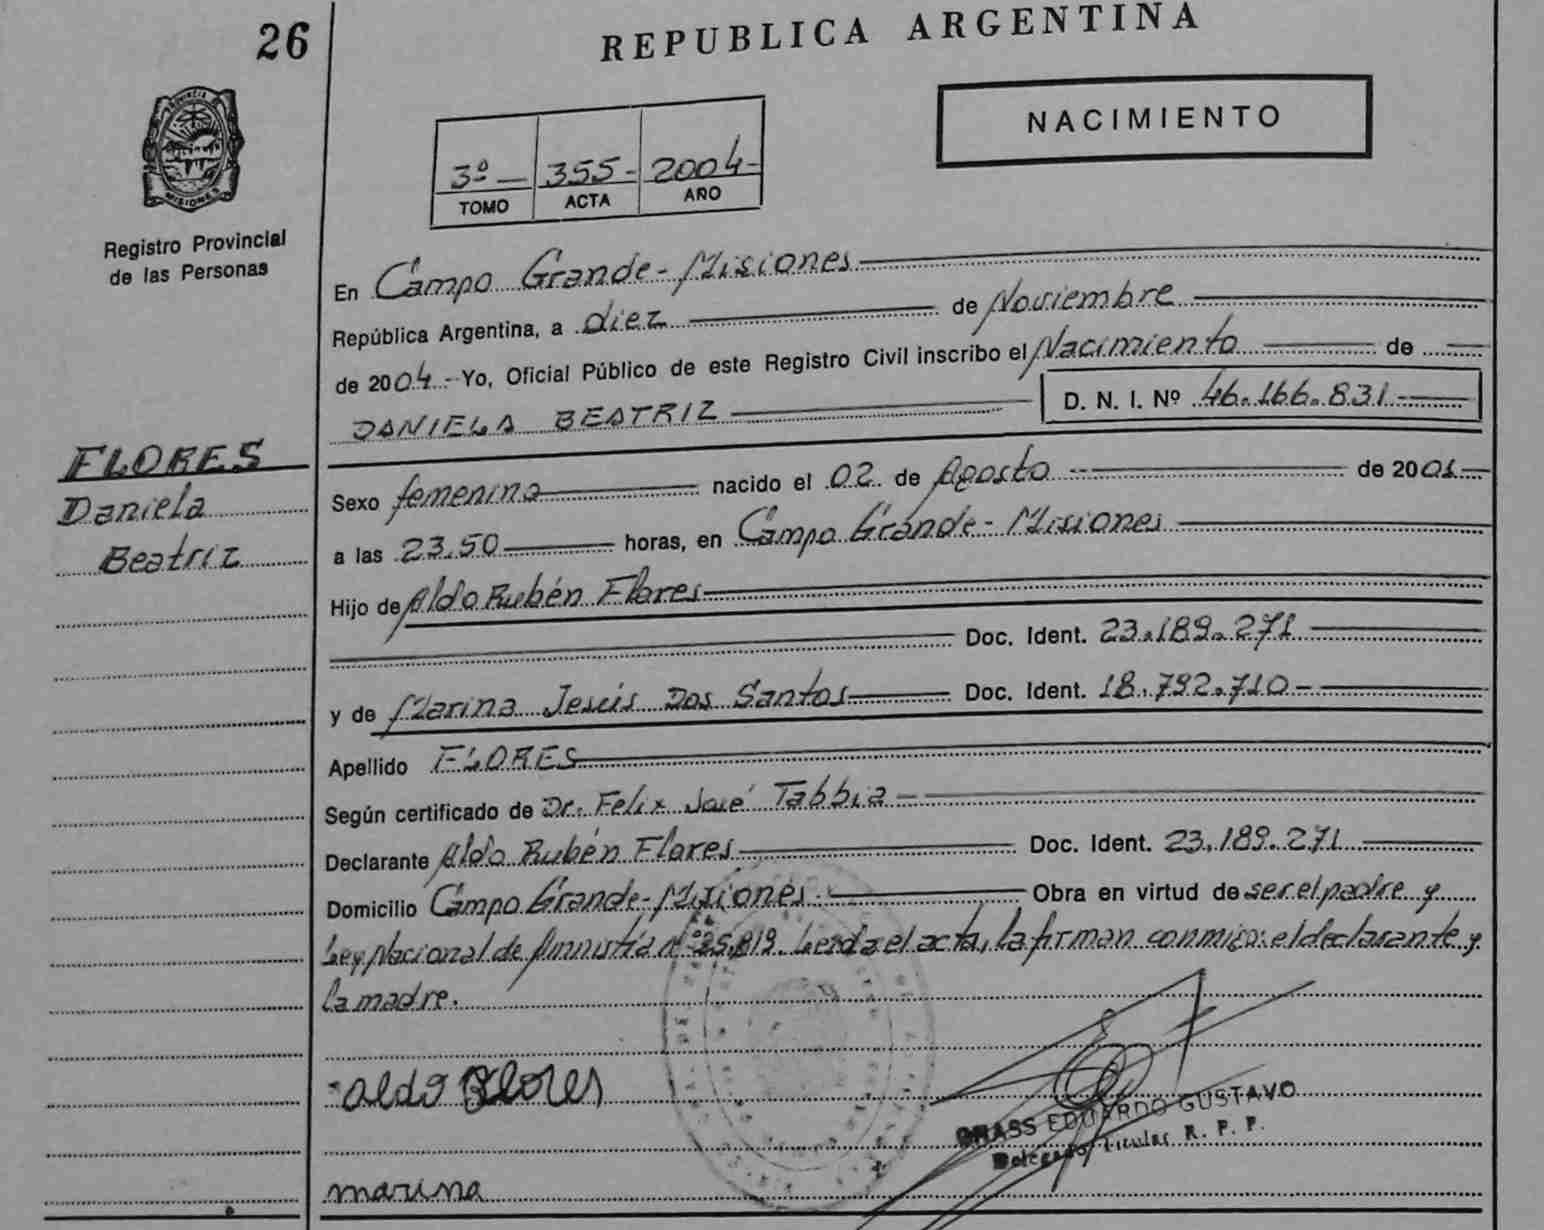 26
REPUBLICA ARGENTINA
NACIMIENTO
3º 355 - 2004 -
TOMO ACTA AÑO
PROVINCIA DE
MISIONES
Registro Provincial
de las Personas
En Campo Grande - Misiones
República Argentina, a diez de Noviembre
de 2004 - Yo, Oficial Público de este Registro Civil inscribo el Nacimiento de
DANIELA BEATRIZ D. N. I. Nº 46.166.831
FLORES
Daniela
Beatriz
Sexo femenino nacido el 02 de Agosto de 2001
a las 23.50 horas, en Campo Grande - Misiones
Hijo de Aldo Rubén Flores
Doc. Ident. 23.189.271
y de Marina Jesús Dos Santos Doc. Ident. 18.792.710 -
Apellido FLORES
Según certificado de Dr. Felix José Tabbia -
Declarante Aldo Rubén Flores Doc. Ident. 23.189.271
Domicilio Campo Grande - Misiones Obra en virtud de ser el padre y
Ley Nacional de Amnistía Nº 25.819. Leída el acta, la firman conmigo: el declarante y
la madre.
aldo Flores
GRASS EDUARDO GUSTAVO
Delegado Titular R. P. P.
marina